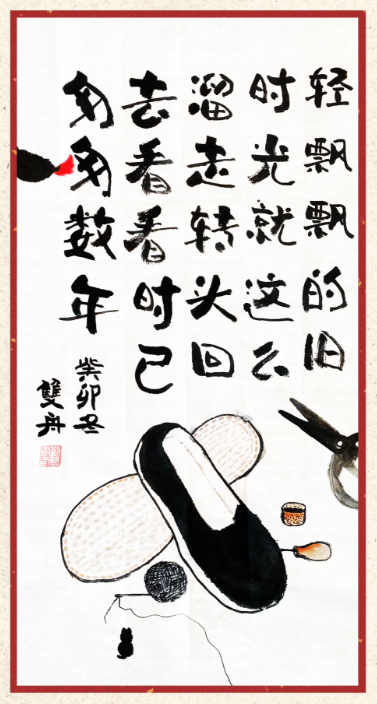 轻飘飘的旧
时光就这么
溜走转头回
去看看时已
匆匆数年
癸卯冬
雙舟